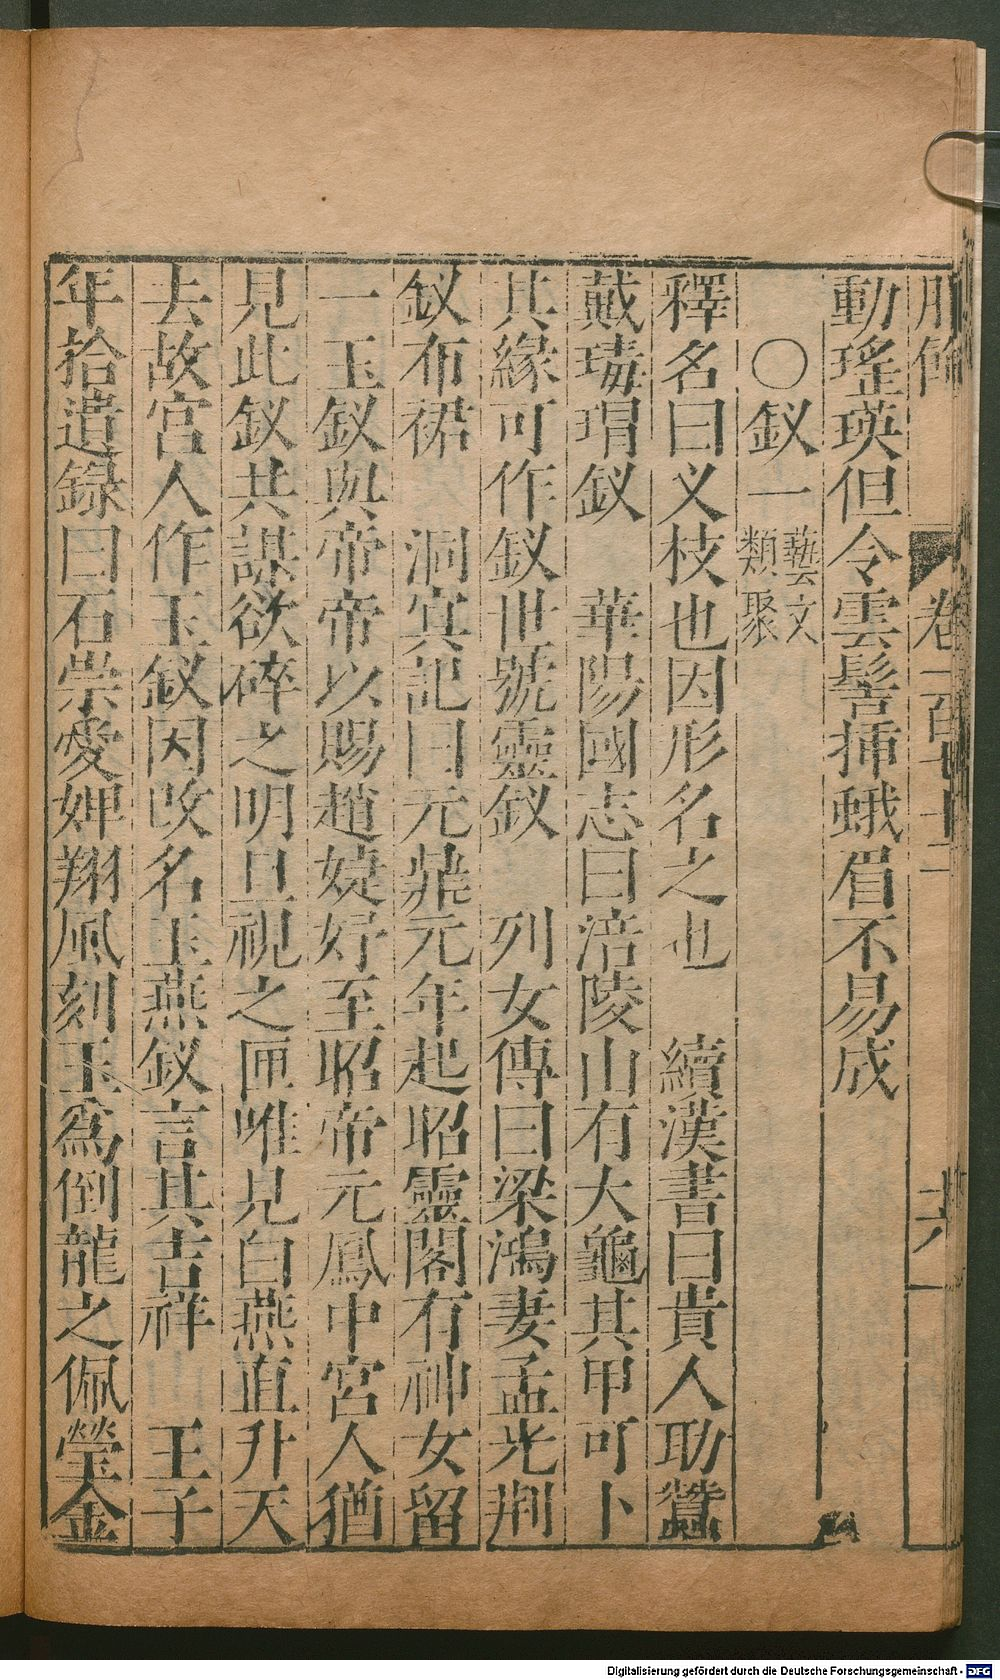 卷一百七十二
動瑤瑛但令雲髻揷蛾眉不易成
○釵一 藝文類聚
釋名曰叉枝也因形名之也 續漢書曰貴人助蠶
戴瑇瑁釵 華陽國志曰涪陵山有大龜其甲可卜
其緣可作釵世號靈釵 列女傳曰梁鴻妻孟光荆
釵布裙 洞冥記曰元鼎元年起昭靈閣有神女留
一玉釵與帝帝以賜趙婕妤至昭帝元鳳中宮人猶
見此釵共謀欲碎之明旦視之匣唯見白燕直升天
去故宮人作玉釵因改名玉燕釵言其吉祥 王子
年拾遺錄曰石崇愛婢翔風刻玉爲倒龍之佩瑩金
Digitalisierung gefördert durch die Deutsche Forschungsgemeinschaft - DFG